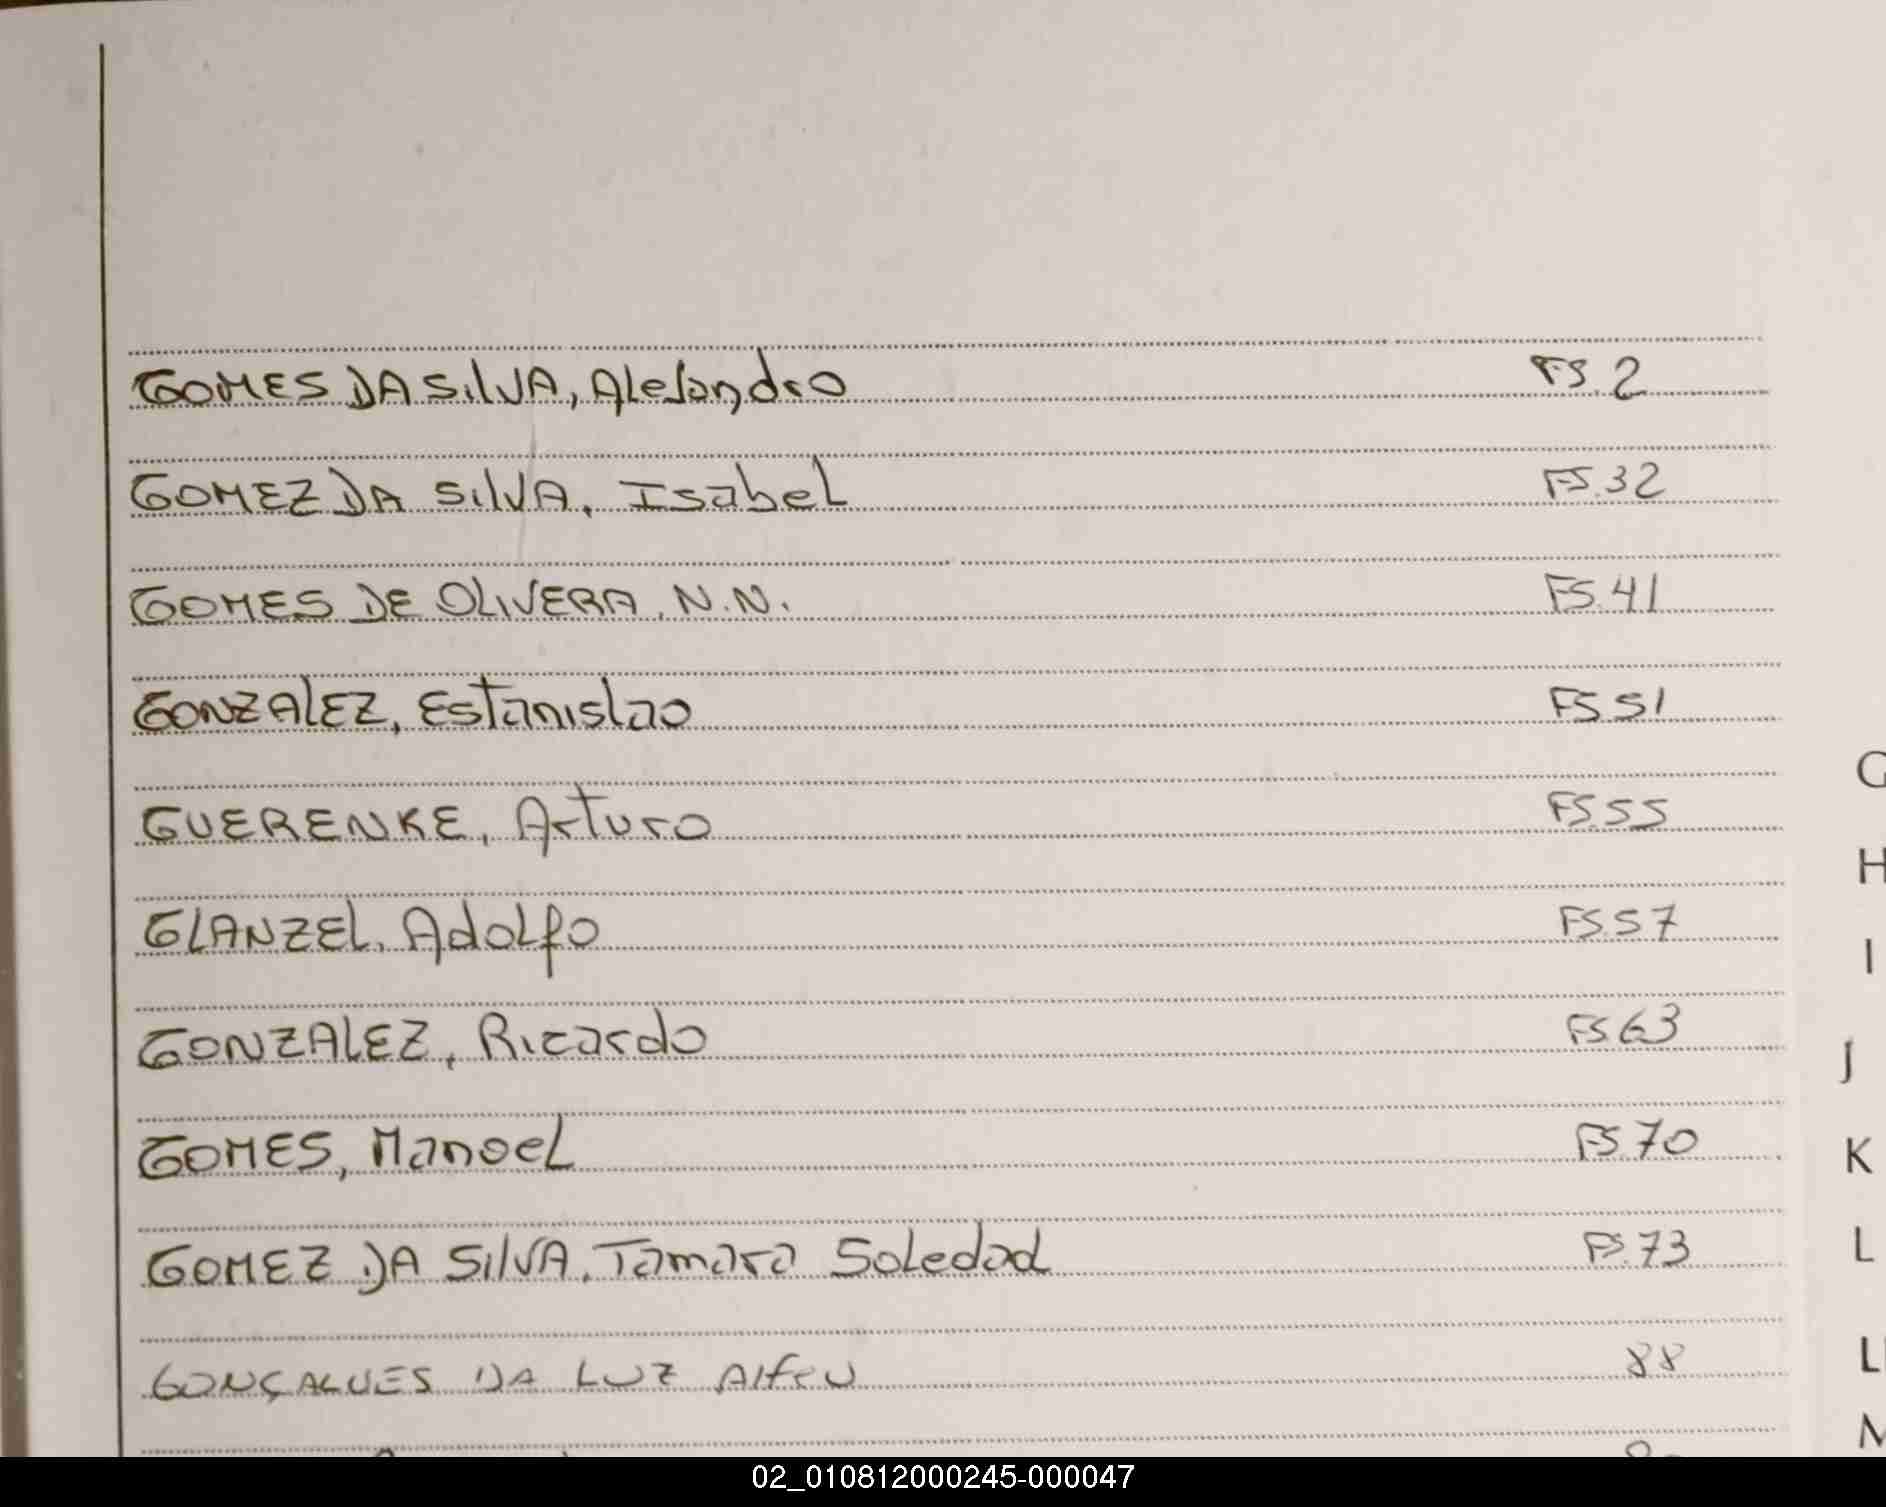 GOMES DA SilVA, Alejandro FS.2
GOMEZ DA SilVA, Isabel FS.32
GOMES DE OLIVERA, N.N. FS.41
GONZALEZ, Estanislao FS 51
GUERENKE, Arturo FS.55
GLANZEL, Adolfo FS.57
GONZALEZ, Ricardo FS 63
GOMES, Manoel FS.70
GOMEZ DA SilVA, Tamara Soledad FS.73
GONÇALVES DA LUZ Alfeu 88
G
H
I
J
K
L
Ll
M
02_010812000245-000047